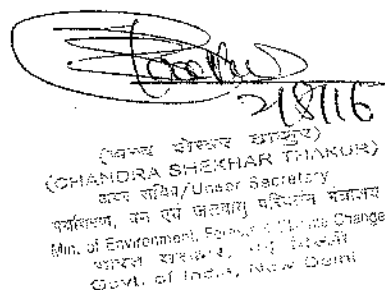 2/8/16
(CHANDRA SHEKHAR THAKUR)
अवर सचिव/Under Secretary
पर्यावरण, वन एवं जलवायु परिवर्तन मंत्रालय
Min. of Environment, Forest & Climate Change
भारत सरकार, नई दिल्ली
Govt. of India, New Delhi